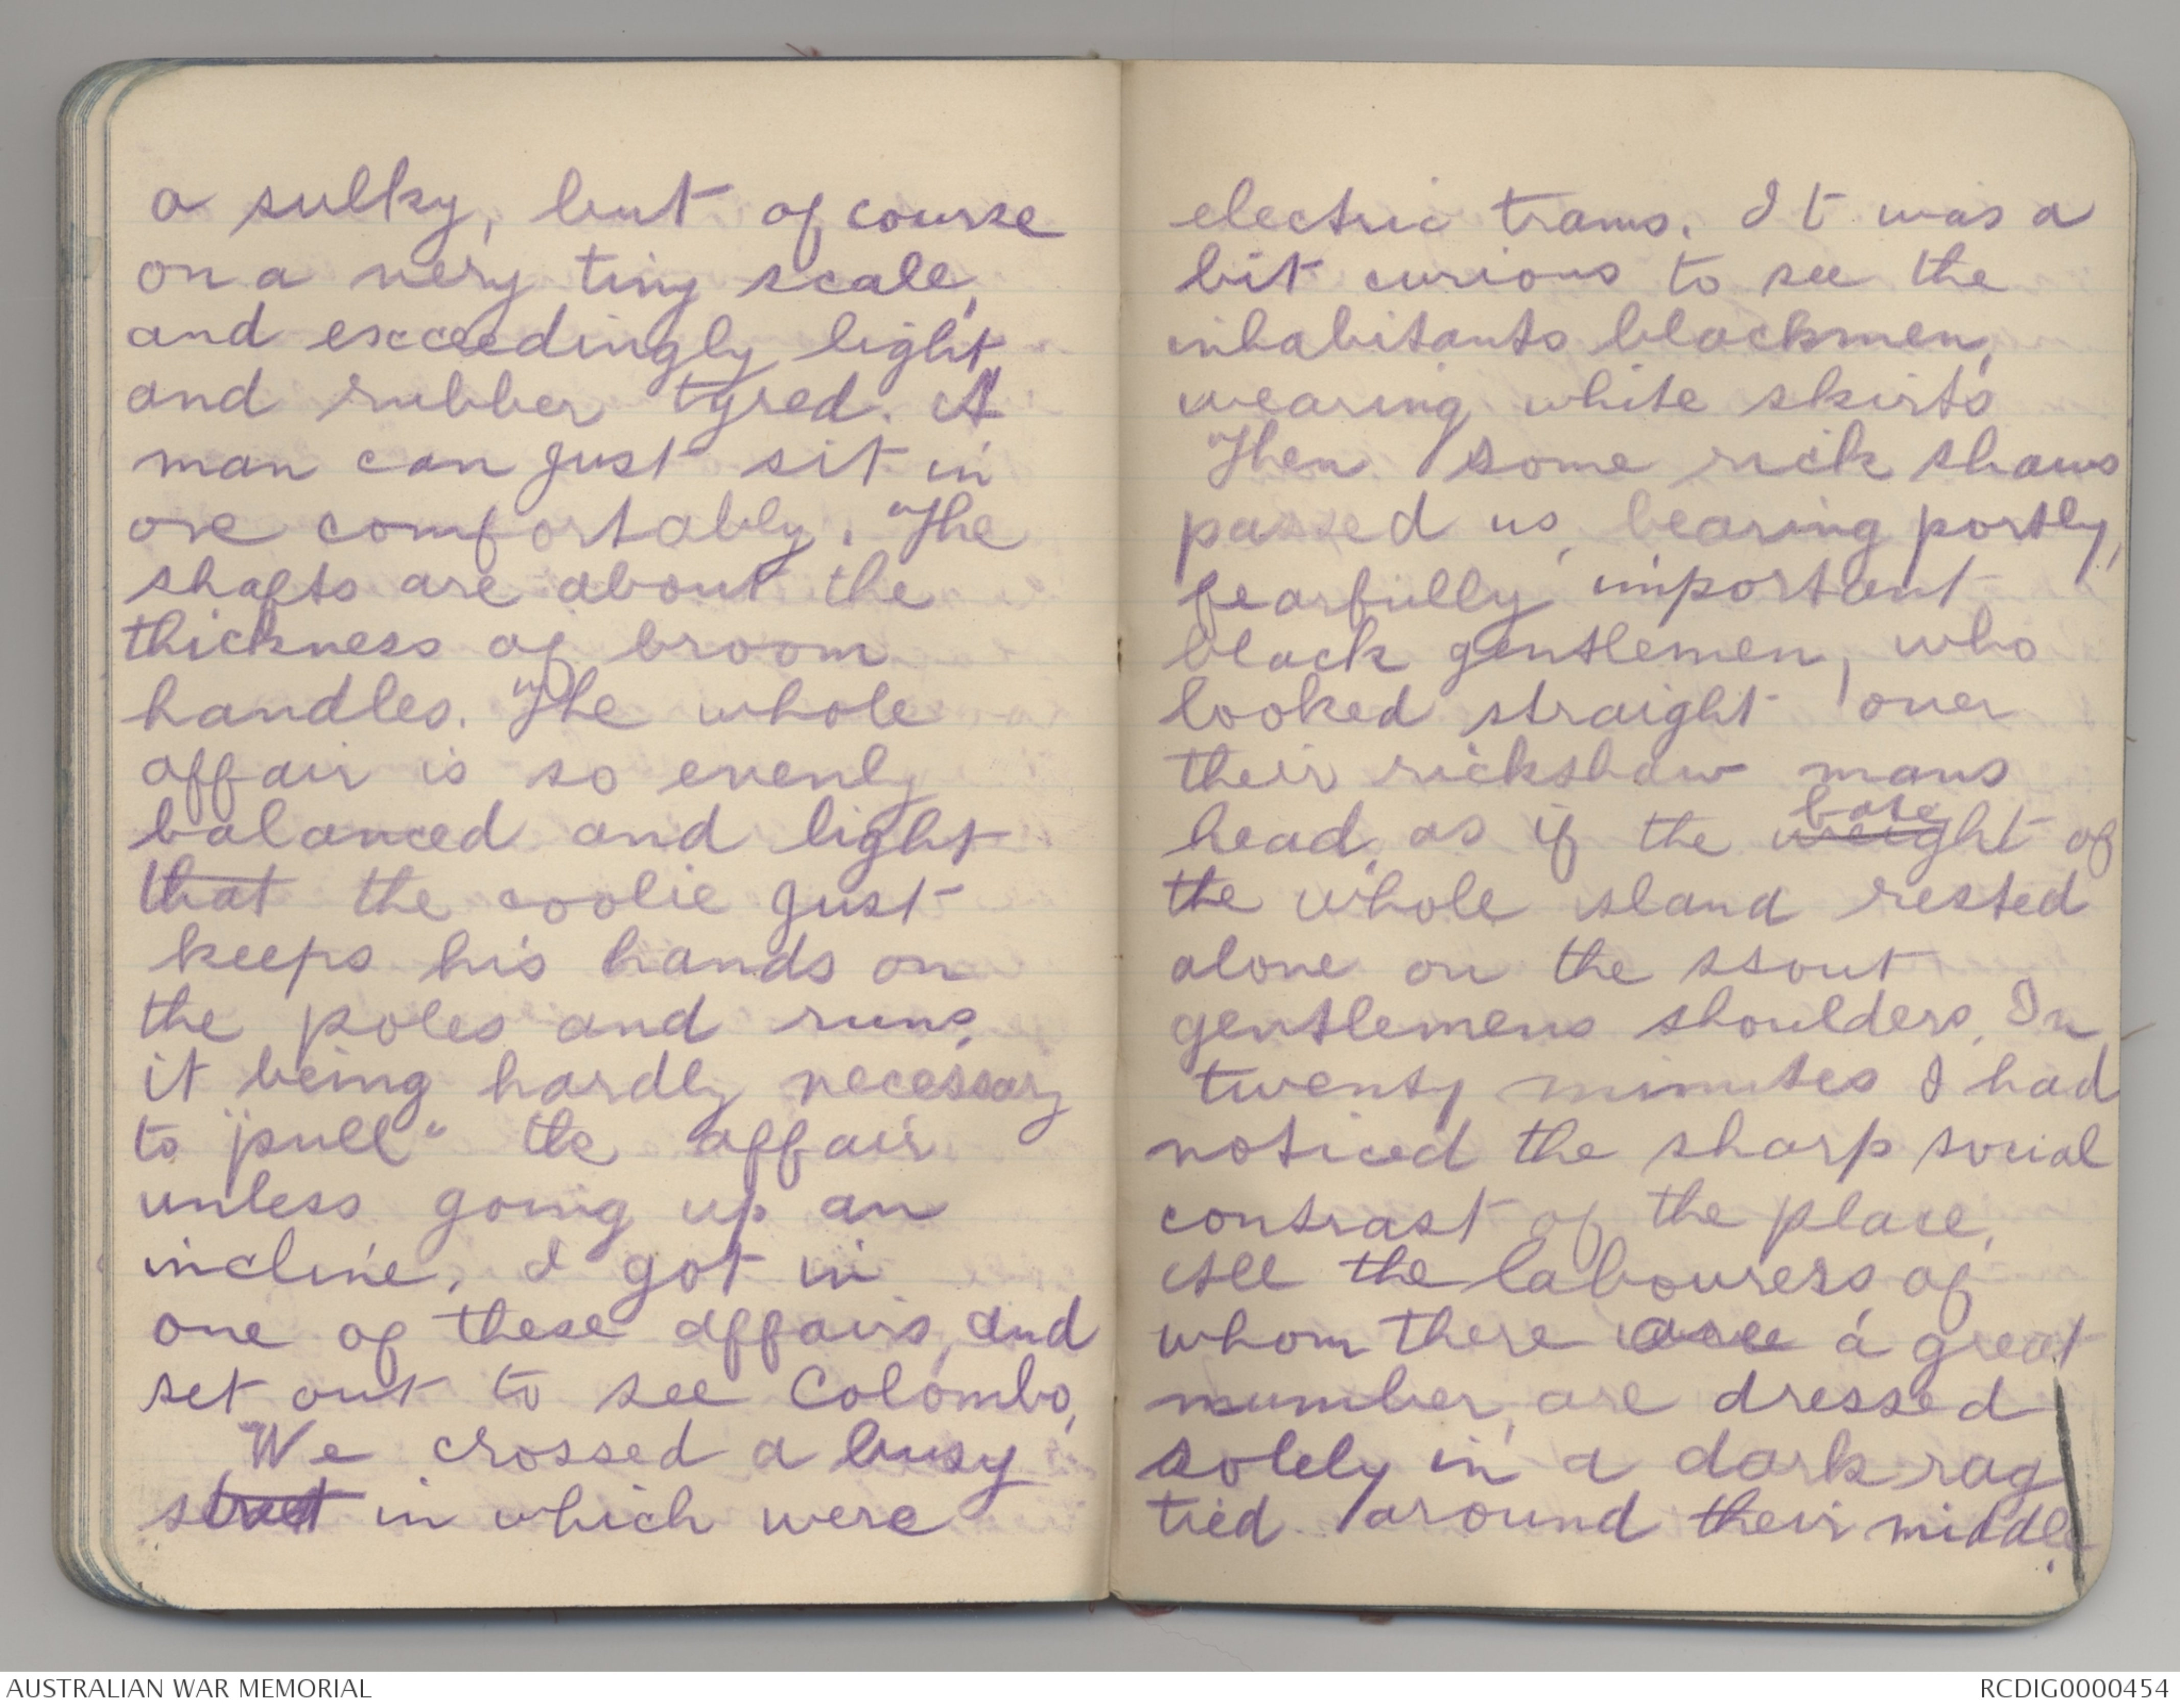 a sulky, but of course
on a very tiny scale,
and exceedingly light
and rubber tyred. A
man can just sit in
one comfortably. The
shafts are about the
thickness of broom
handles. The whole
affair is so evenly
balanced and light
that the coolie just
keeps his hands on
the poles and runs,
it being hardly necessary
to "pull" the affair
unless going up an
incline. I got in
one of these affairs, and
set out to see Colombo,
We crossed a busy
street in which were
electric trams. It was a
bit curious to see the
inhabitants blackmen,
wearing white skirts
Then some rick shaws
passed us, bearing portly,
fearfully important
black gentlemen, who
looked straight over
their rickshaw mans
head, as if the weight of
the whole island rested
alone on the stout
gentlemens shoulders. In
twenty minutes I had
noticed the sharp social
contrast of the place,
All the labourers of
whom there are a great
number, are dressed
solely in a dark rag
tied around their middle.
AUSTRALIAN WAR MEMORIAL
RCDIG0000454